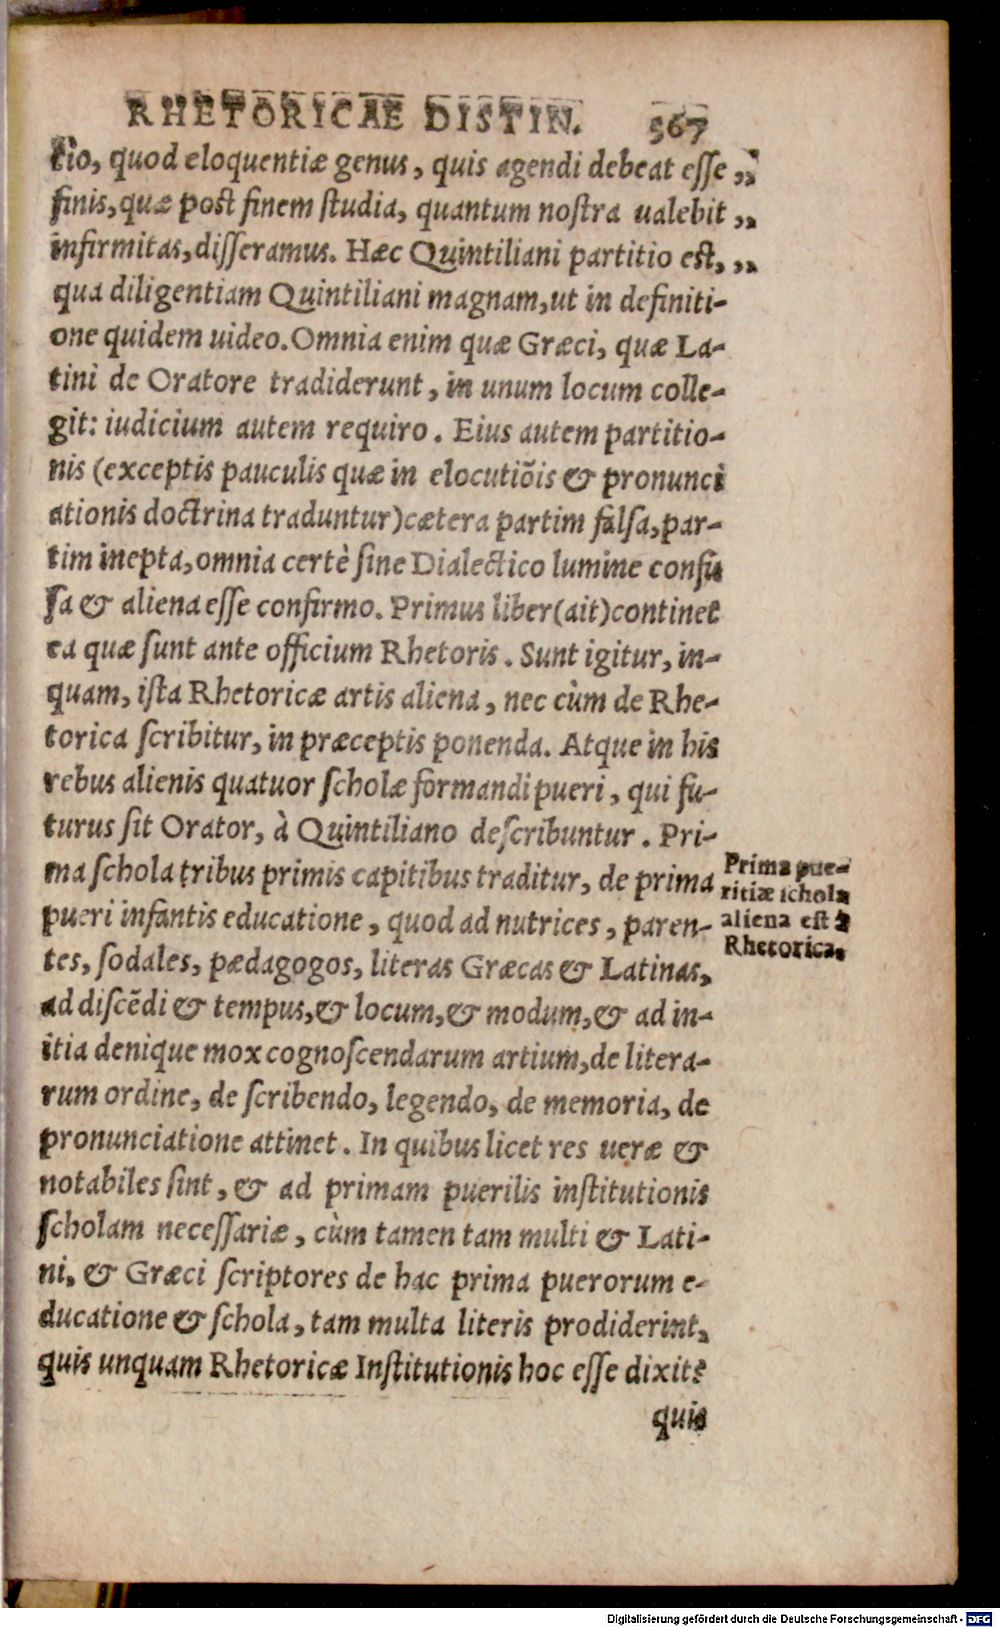 RHETORICAE DISTIN. 567
tio, quod eloquentiæ genus, quis agendi debeat esse „
finis, quæ post finem studia, quantum nostra ualebit „
infirmitas, disseramus. Hæc Quintiliani partitio est, „
qua diligentiam Quintiliani magnam, ut in definiti-
one quidem uideo. Omnia enim quæ Græci, quæ La-
tini de Oratore tradiderunt, in unum locum colle-
git: iudicium autem requiro. Eius autem partitio-
nis (exceptis pauculis quæ in elocutiõis & pronunci
ationis doctrina traduntur) cætera partim falsa, par-
tim inepta, omnia certè sine Dialectico lumine confu
sa & aliena esse confirmo. Primus liber (ait) continet
ea quæ sunt ante officium Rhetoris. Sunt igitur, in-
quam, ista Rhetoricæ artis aliena, nec cùm de Rhe-
torica scribitur, in præceptis ponenda. Atque in his
rebus alienis quatuor scholæ formandi pueri, qui fu-
turus sit Orator, à Quintiliano describuntur. Pri-
ma schola tribus primis capitibus traditur, de prima
pueri infantis educatione, quod ad nutrices, paren-
tes, sodales, pædagogos, literas Græcas & Latinas,
ad discēdi & tempus, & locum, & modum, & ad in-
itia denique mox cognoscendarum artium, de litera-
rum ordine, de scribendo, legendo, de memoria, de
pronunciatione attinet. In quibus licet res ueræ &
notabiles sint, & ad primam puerilis institutionis
scholam necessariæ, cùm tamen tam multi & Lati-
ni, & Græci scriptores de hac prima puerorum e-
ducatione & schola, tam multa literis prodiderint,
quis unquam Rhetoricæ Institutionis hoc esse dixit?
quis
Prima pue-
ritiæ schola
aliena est à
Rhetorica.
Digitalisierung gefördert durch die Deutsche Forschungsgemeinschaft - DFG